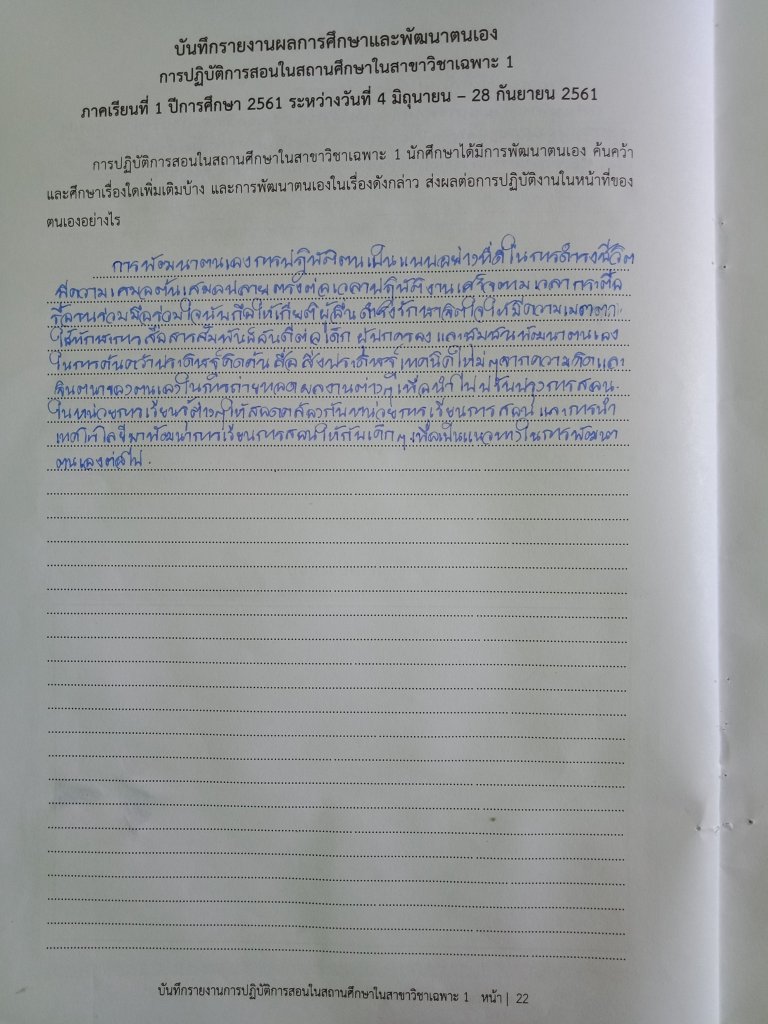 บันทึกรายงานผลการศึกษาและพัฒนาตนเอง
การปฏิบัติการสอนในสถานศึกษาในสาขาวิชาเฉพาะ 1
ภาคเรียนที่ 1 ปีการศึกษา 2561 ระหว่างวันที่ 4 มิถุนายน – 28 กันยายน 2561
การปฏิบัติการสอนในสถานศึกษาในสาขาวิชาเฉพาะ 1 นักศึกษาได้มีการพัฒนาตนเอง ค้นคว้า
และศึกษาเรื่องใดเพิ่มเติมบ้าง และการพัฒนาตนเองในเรื่องดังกล่าว ส่งผลต่อการปฏิบัติงานในหน้าที่ของ
ตนเองอย่างไร
การพัฒนาตนเองการปฏิบัติตนเป็นแบบอย่างที่ดีในการดำรงชีวิต
มีความเสมอต้นเสมอปลาย ตรงต่อเวลาปฏิบัติงานเสร็จตามเวลา
ให้เกียรติผู้อื่น จิตใจให้มีความเมตตา
ใช้ทักษะการสื่อสารสัมพันธ์อันดีต่อเด็ก ผู้ปกครอง และชุมชนพัฒนาตนเอง
ในการค้นคว้าประดิษฐ์คิดค้น สื่อ สิ่งประดิษฐ์ เทคนิคใหม่ๆจากความคิดและ
จินตนาของตนเองในการถ่ายทอดผลงานต่างๆเพื่อนำไปปรับปรุงการสอน
ในหน่วยการเรียนรู้ต่างๆให้สอดคล้องกับหน่วยการเรียนการสอน และการนำ
เทคโนโลยีมาพัฒนาการเรียนการสอนให้กับเด็กๆเพื่อเป็นแนวทางในการพัฒนา
ตนเองต่อไป.
บันทึกรายงานการปฏิบัติการสอนในสถานศึกษาในสาขาวิชาเฉพาะ 1 หน้า | 22